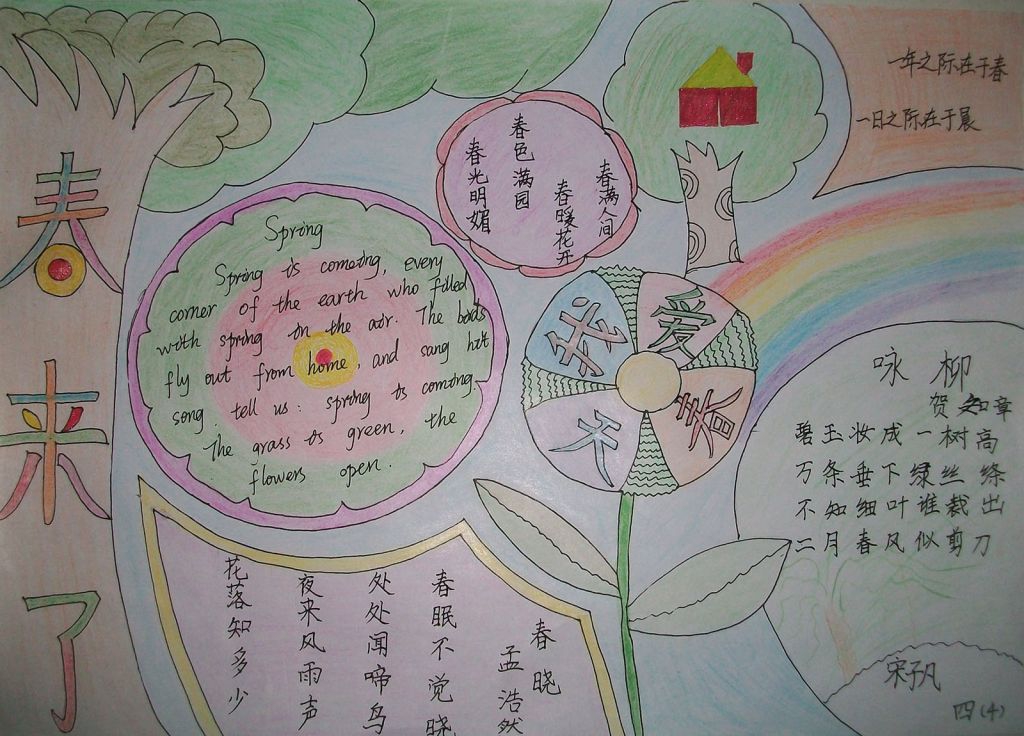 春来了
Spring
Spring is comeing, every
corner of the earth who filled
with spring in the air. The birds
fly out from home, and sang hit
song. tell us: spring is coming.
The grass is green, the
flowers open.
春光明媚
春色满园
春暖花开
春满人间
一年之际在于春
一日之际在于晨
我爱春天
咏柳
贺知章
碧玉妆成一树高
万条垂下绿丝绦
不知细叶谁裁出
二月春风似剪刀
春晓
孟浩然
春眠不觉晓
处处闻啼鸟
夜来风雨声
花落知多少
宋子凡
四(4)